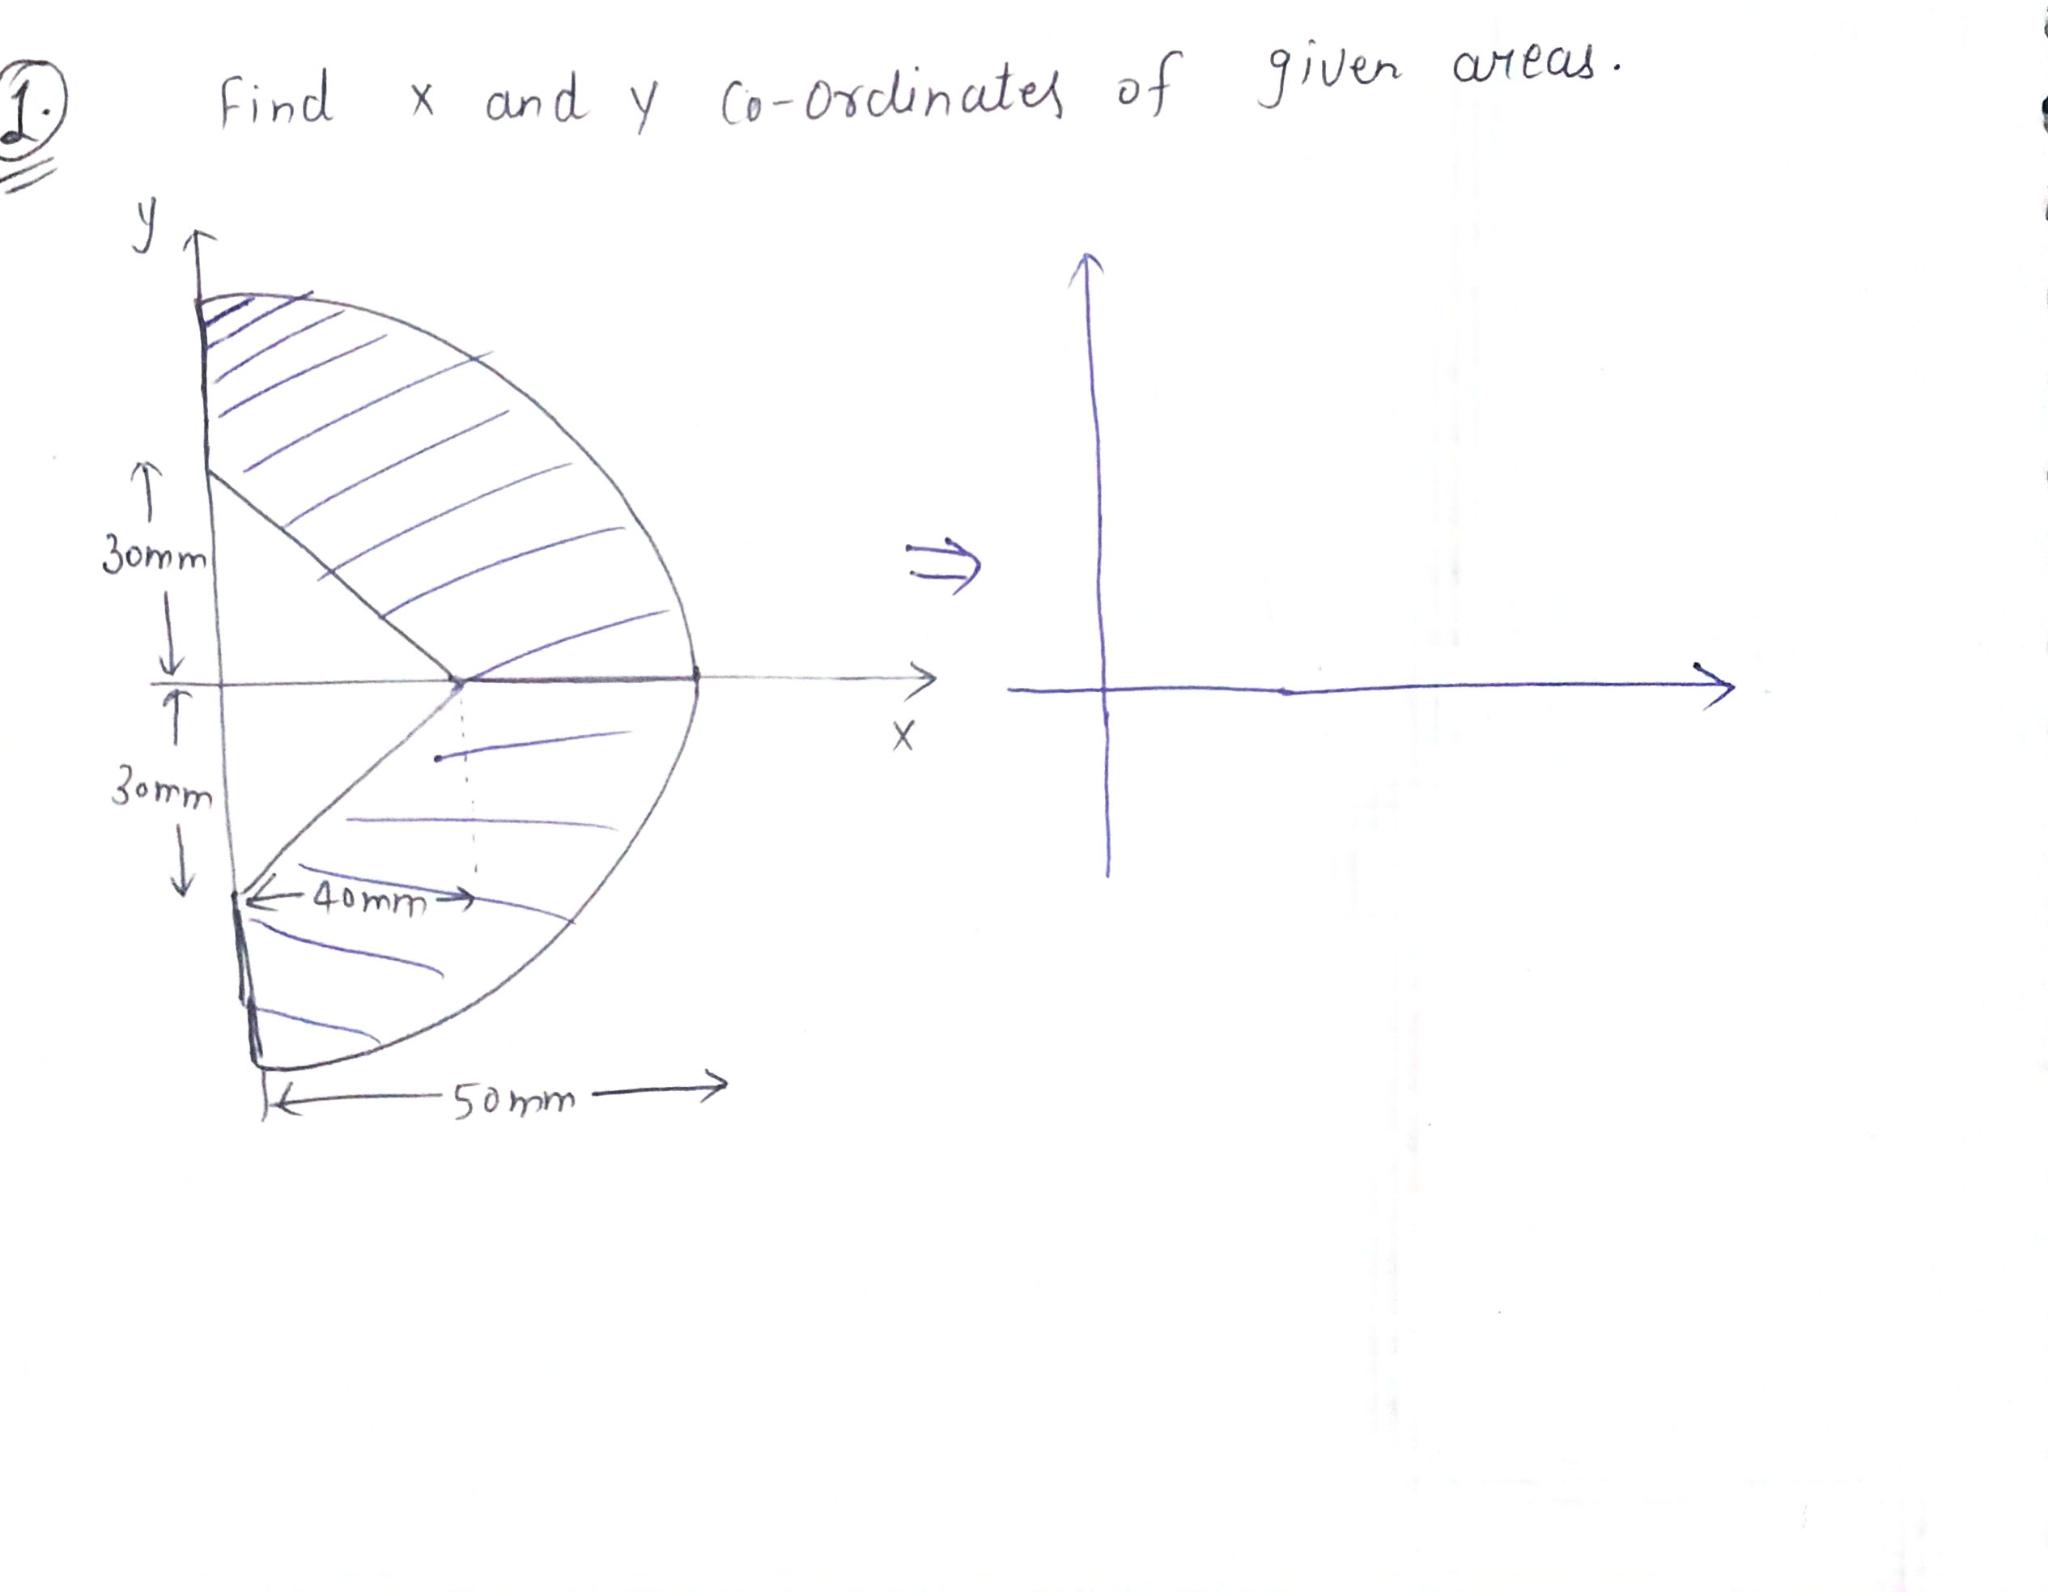 1.
Find x and y Co-ordinates of given areas.
y
30mm
x
30mm
40mm
50mm